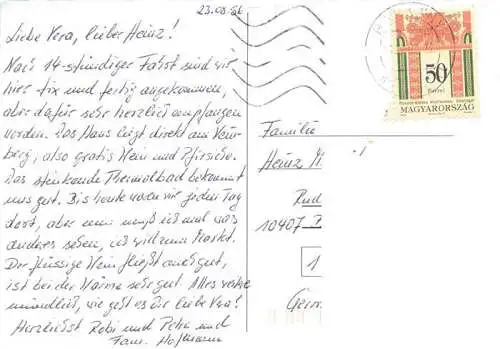 23.08.96
Liebe Vera, lieber Heinz!
Nach 14-stündiger Fahrt sind wir
hier fix und fertig angekommen,
aber dafür sehr herzlich empfangen
worden. Das Haus liegt direkt am Wein-
berg, also gratis Wein und Pfirsiche.
Das stinkende Thermalbad bekommt
uns gut. Bis heute waren wir jeden Tag
dort, aber nun muß ich mal was
anderes sehen, ich will zum Markt.
Der flüssige Wein fließt auch gut,
ist bei der Wärme sehr gut. Alles weitere
mündlich, wie geht es Dir liebe Vera?
Herzlichst Robi und Petra und
Fam. Hofmann
50
Forint
MAGYARORSZÁG
Familie
Heinz
Rud
10407
1
Germ